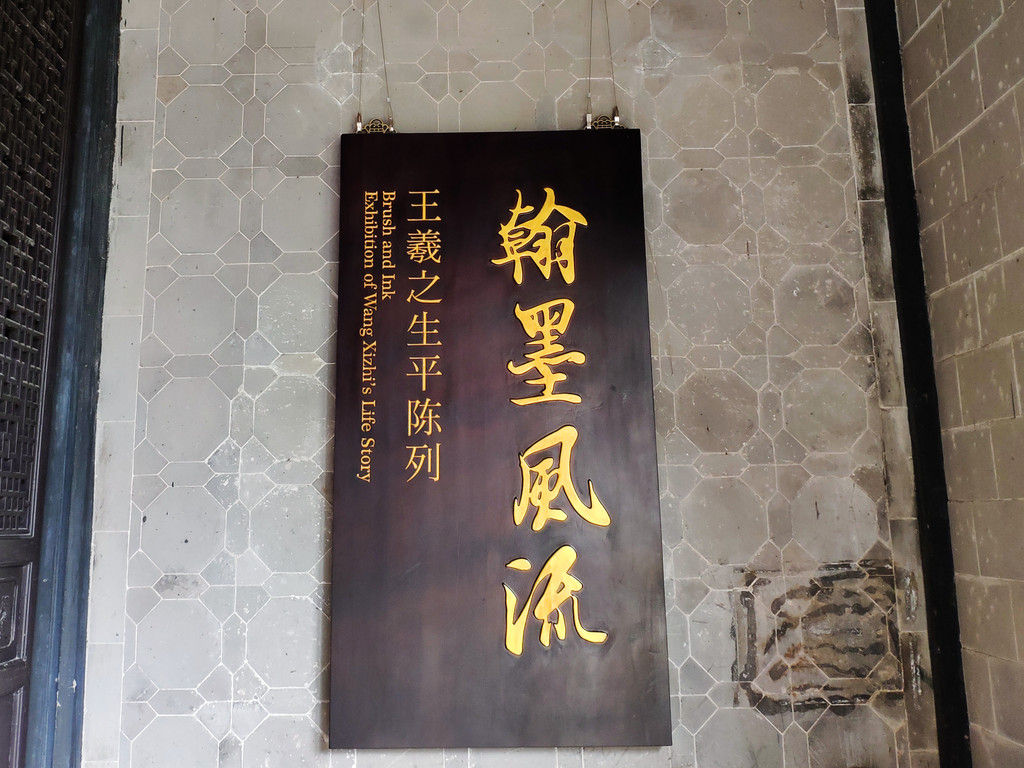 翰墨風流
王羲之生平陈列
Brush and Ink
Exhibition of Wang Xizhi's Life Story